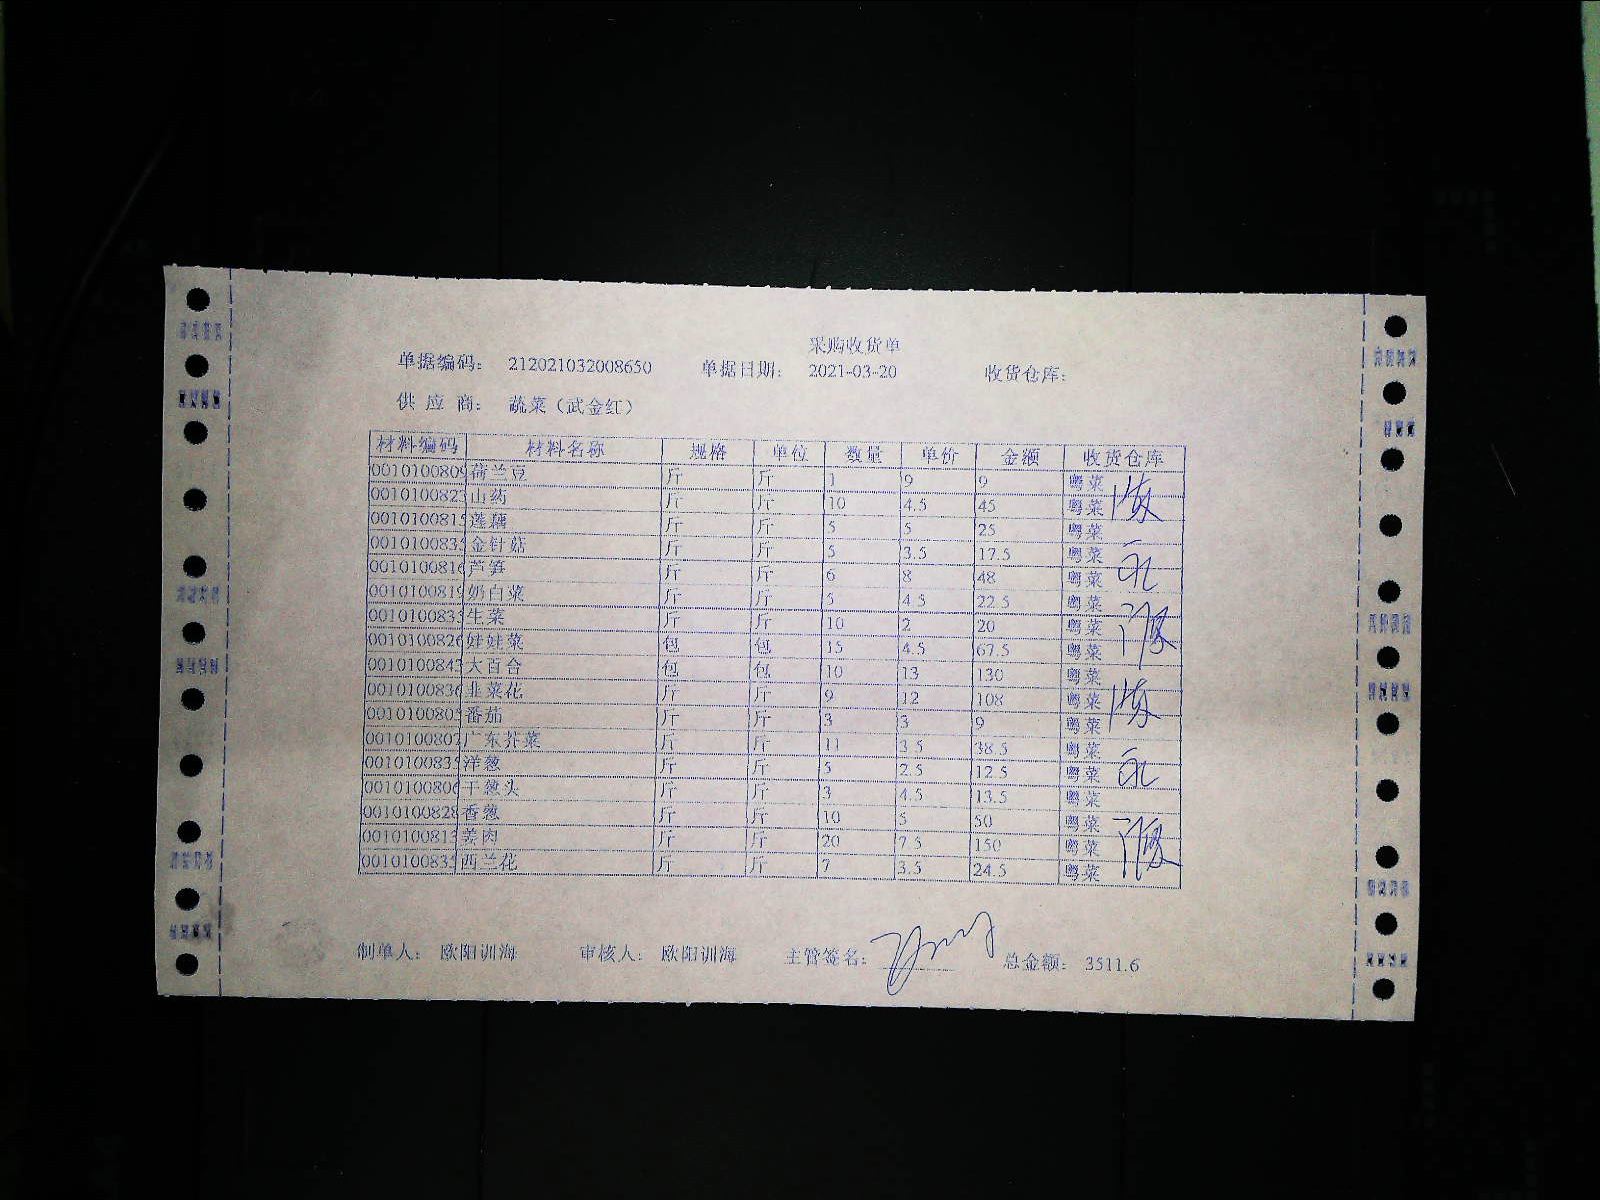 采购收货单
单据编码: 212021032008650 单据日期: 2021-03-20 收货仓库:
供应商: 蔬菜（武金红）
材料编码 材料名称 规格 单位 数量 单价 金额 收货仓库
0010100809 荷兰豆 斤 斤 1 9 9 粤菜
0010100823 山药 斤 斤 10 4.5 45 粤菜
0010100815 莲藕 斤 斤 5 5 25 粤菜
001010083 金针菇 斤 斤 5 3.5 17.5 粤菜
0010100816 芦笋 斤 斤 6 8 48 粤菜
0010100819 奶白菜 斤 斤 5 4.5 22.5 粤菜
001010083 生菜 斤 斤 10 2 20 粤菜
0010100826 娃娃菜 包 包 15 4.5 67.5 粤菜
001010084 大百合 包 包 10 13 130 粤菜
0010100836 韭菜花 斤 斤 9 12 108 粤菜
001010080 番茄 斤 斤 3 3 9 粤菜
0010100807 广东芥菜 斤 斤 11 3.5 38.5 粤菜
001010083 洋葱 斤 斤 5 2.5 12.5 粤菜
0010100806 干葱头 斤 斤 3 4.5 13.5 粤菜
0010100828 香葱 斤 斤 10 5 50 粤菜
0010100813 姜肉 斤 斤 20 7.5 150 粤菜
001010083 西兰花 斤 斤 7 3.5 24.5 粤菜
制单人: 欧阳训海 审核人: 欧阳训海 主管签名: 总金额: 3511.6